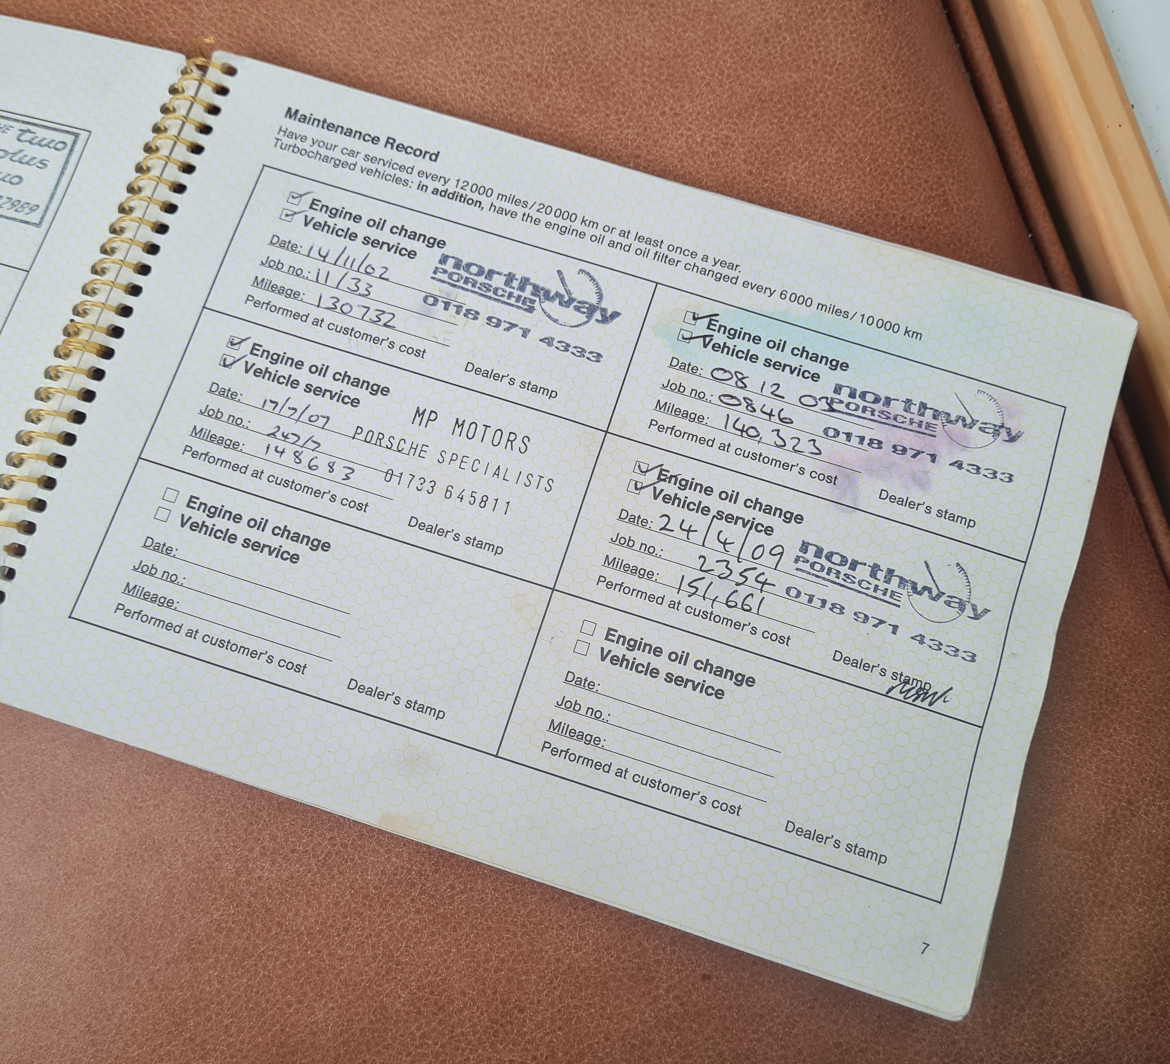 two
2989
Maintenance Record
Have your car serviced every 12 000 miles/20 000 km or at least once a year.
Turbocharged vehicles: in addition, have the engine oil and oil filter changed every 6 000 miles/10 000 km
Engine oil change
Vehicle service
Date: 14/11/02
Job no.: 11/33
Mileage: 130732
Performed at customer's cost
northway
PORSCHE
0118 971 4333
Dealer's stamp
Engine oil change
Vehicle service
Date: 08 12 03
Job no.: 0846
Mileage: 140,323
Performed at customer's cost
northway
PORSCHE
0118 971 4333
Dealer's stamp
Engine oil change
Vehicle service
Date: 17/7/07
Job no.: 247/7
Mileage: 148683
Performed at customer's cost
MP MOTORS
PORSCHE SPECIALISTS
01733 645811
Dealer's stamp
Engine oil change
Vehicle service
Date: 24/4/09
Job no.: 2354
Mileage: 151,661
Performed at customer's cost
northway
PORSCHE
0118 971 4333
Dealer's stamp
Engine oil change
Vehicle service
Date:
Job no.:
Mileage:
Performed at customer's cost
Dealer's stamp
Engine oil change
Vehicle service
Date:
Job no.:
Mileage:
Performed at customer's cost
Dealer's stamp
7